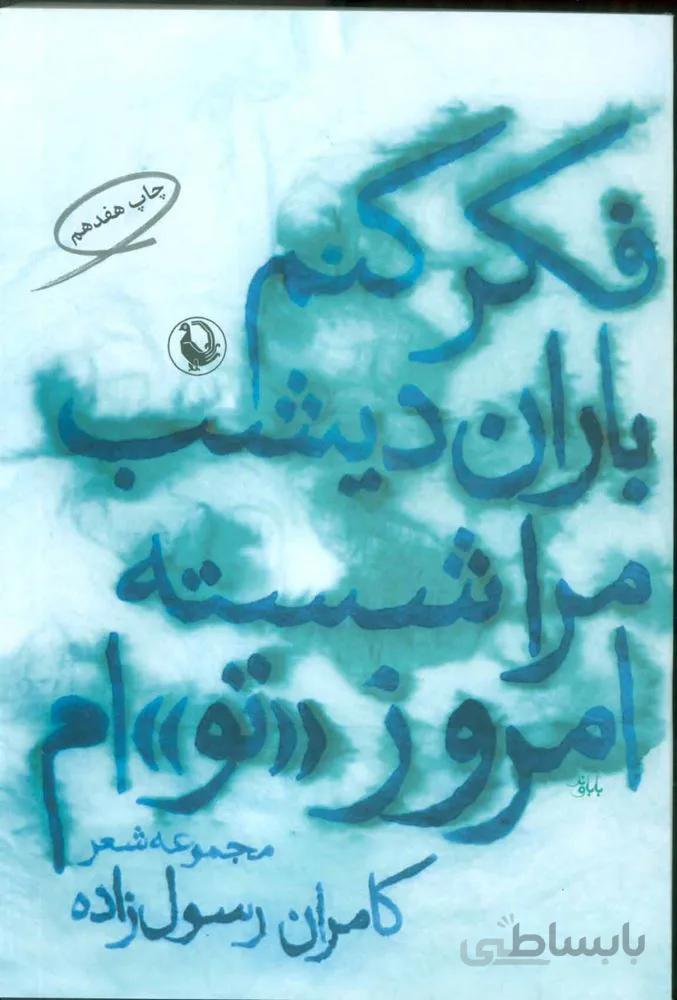 چاپ هفدهم
فکر کنم
باران دیشب
مرا شسته
امروز «تو»ام
مجموعه شعر
کامران رسول‌زاده
بابساطی